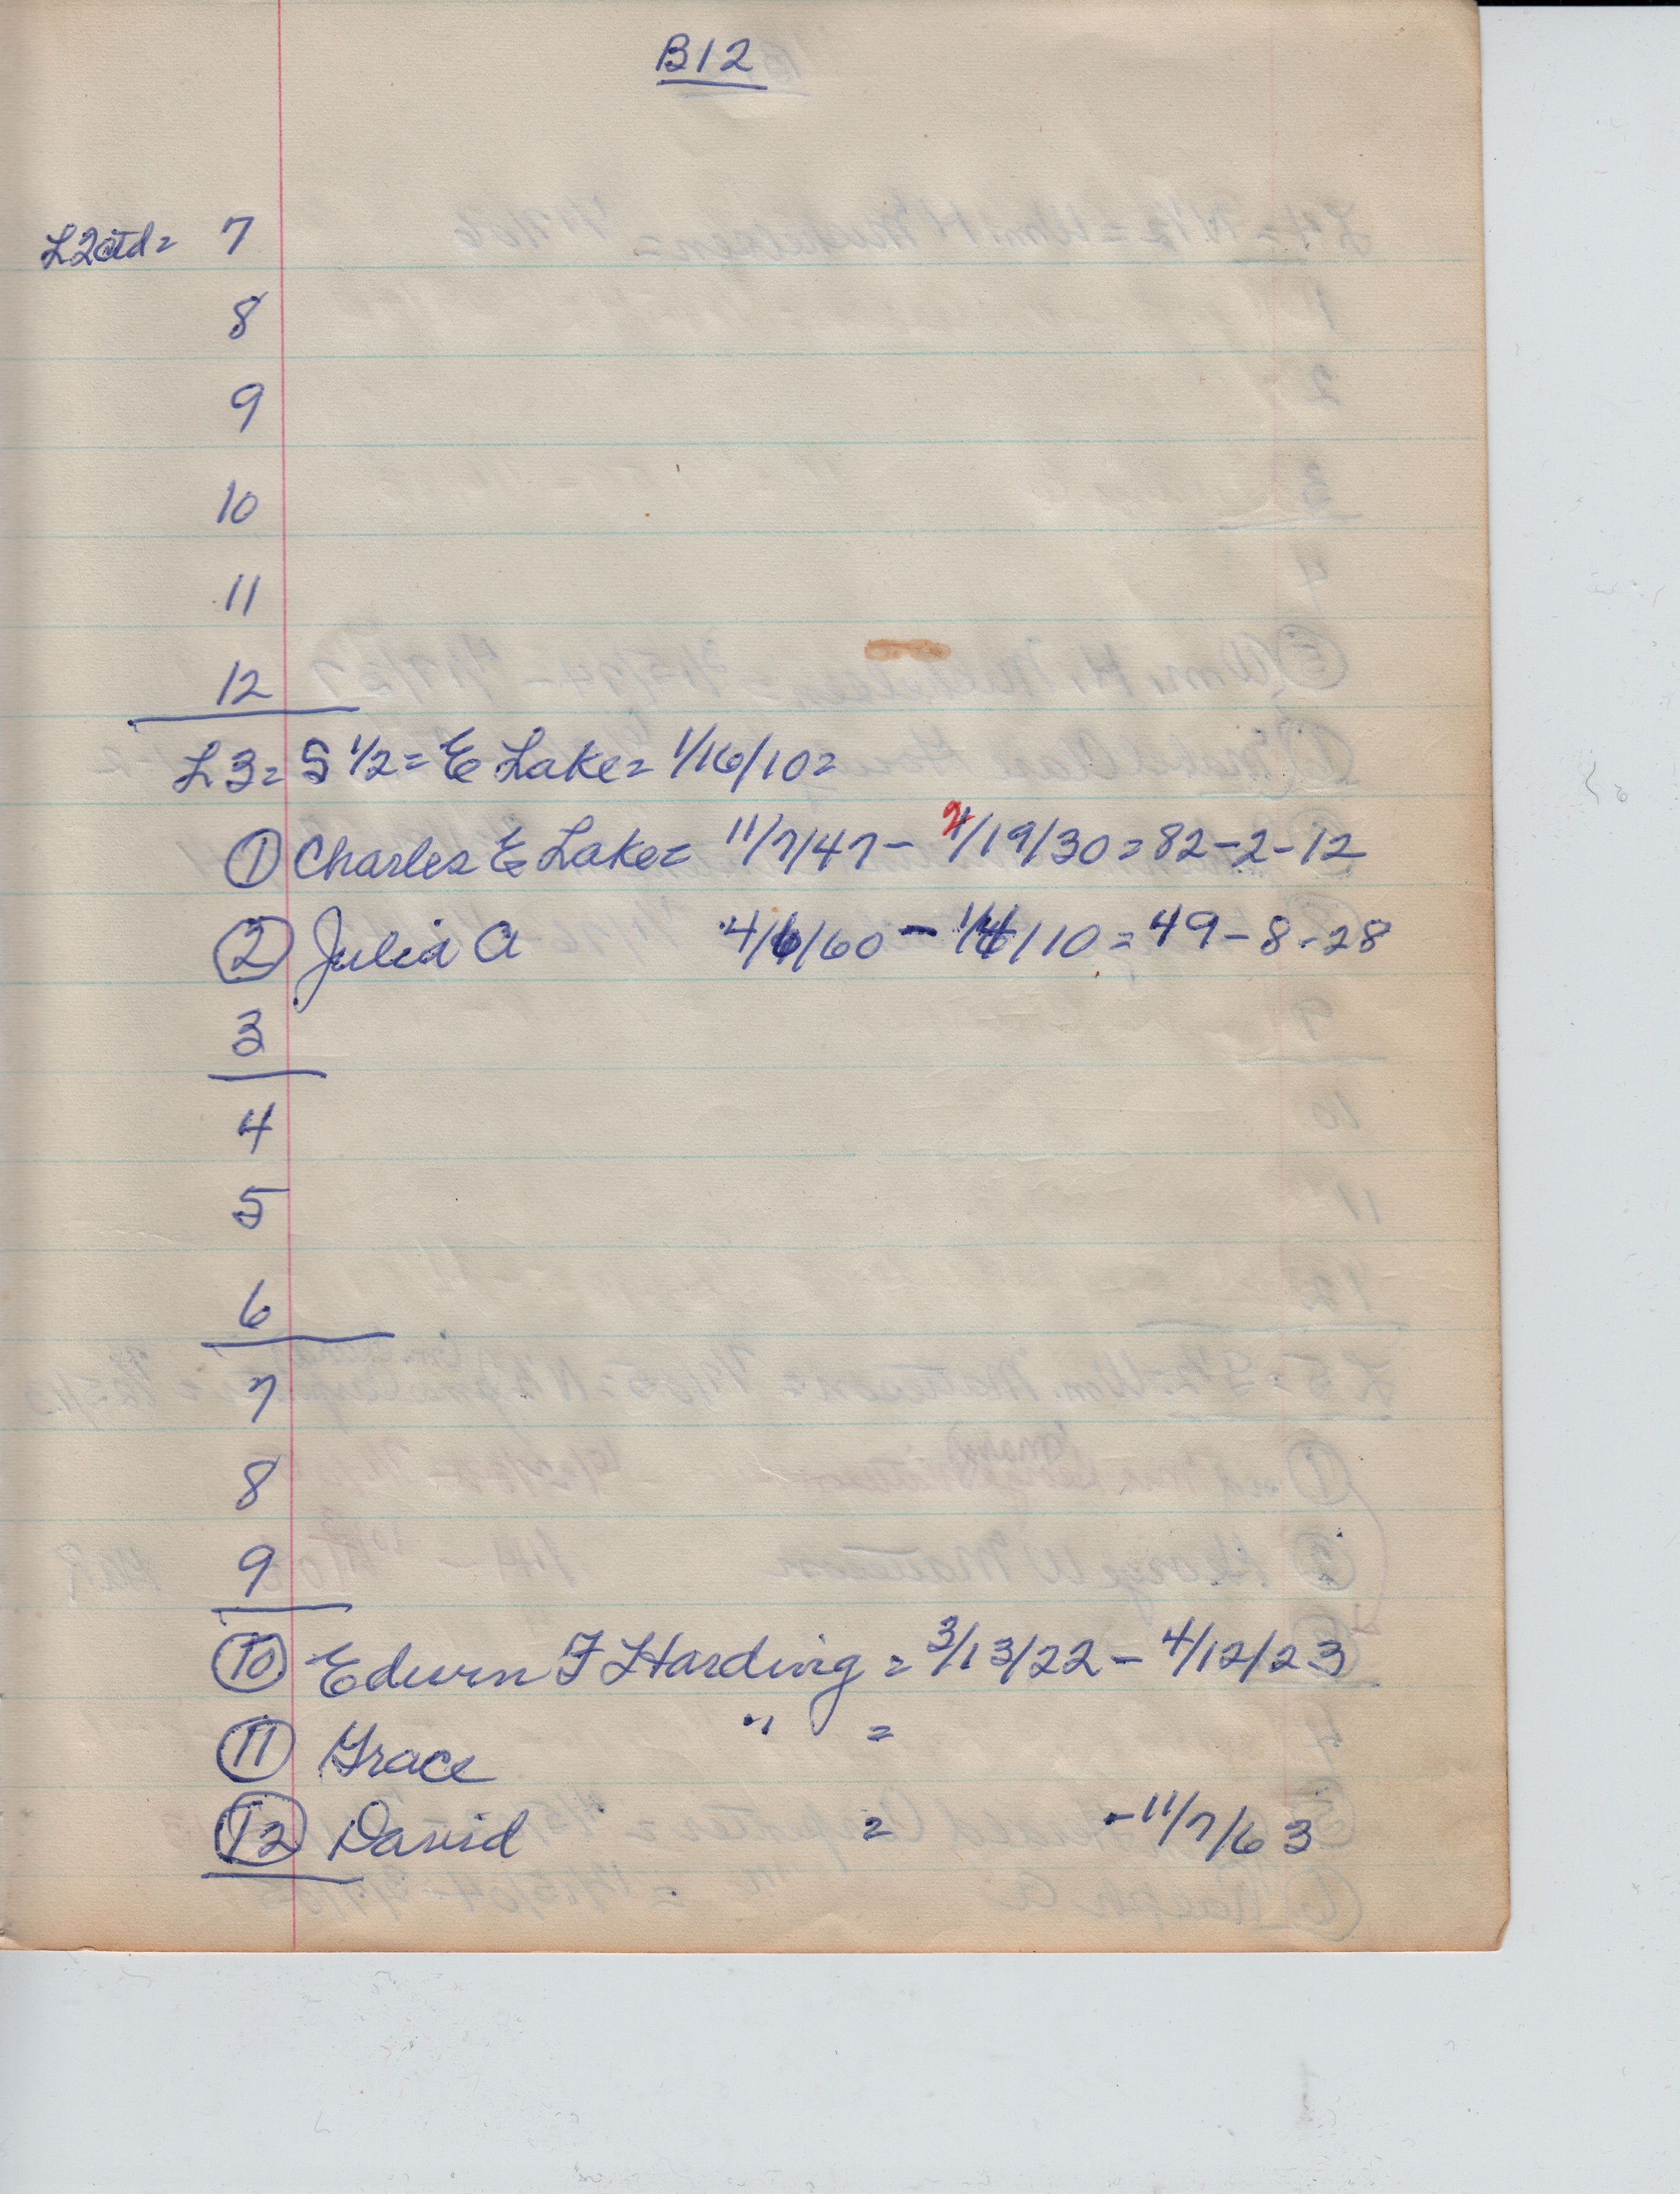 B12
L2ctd= 7
8
9
10
11
12
L3= S 1/2= E Lake= 1/16/10=
① Charles E Lake= 11/7/47 - /19/30 = 82-2-12
② Julia A 4/ /60 - 1/ /10 = 49-8-28
3
4
5
6
7
8
9
⑩ Edwin F Harding = 3/13/22 - 4/12/23
⑪ Grace " =
⑫ David = -11/7/63